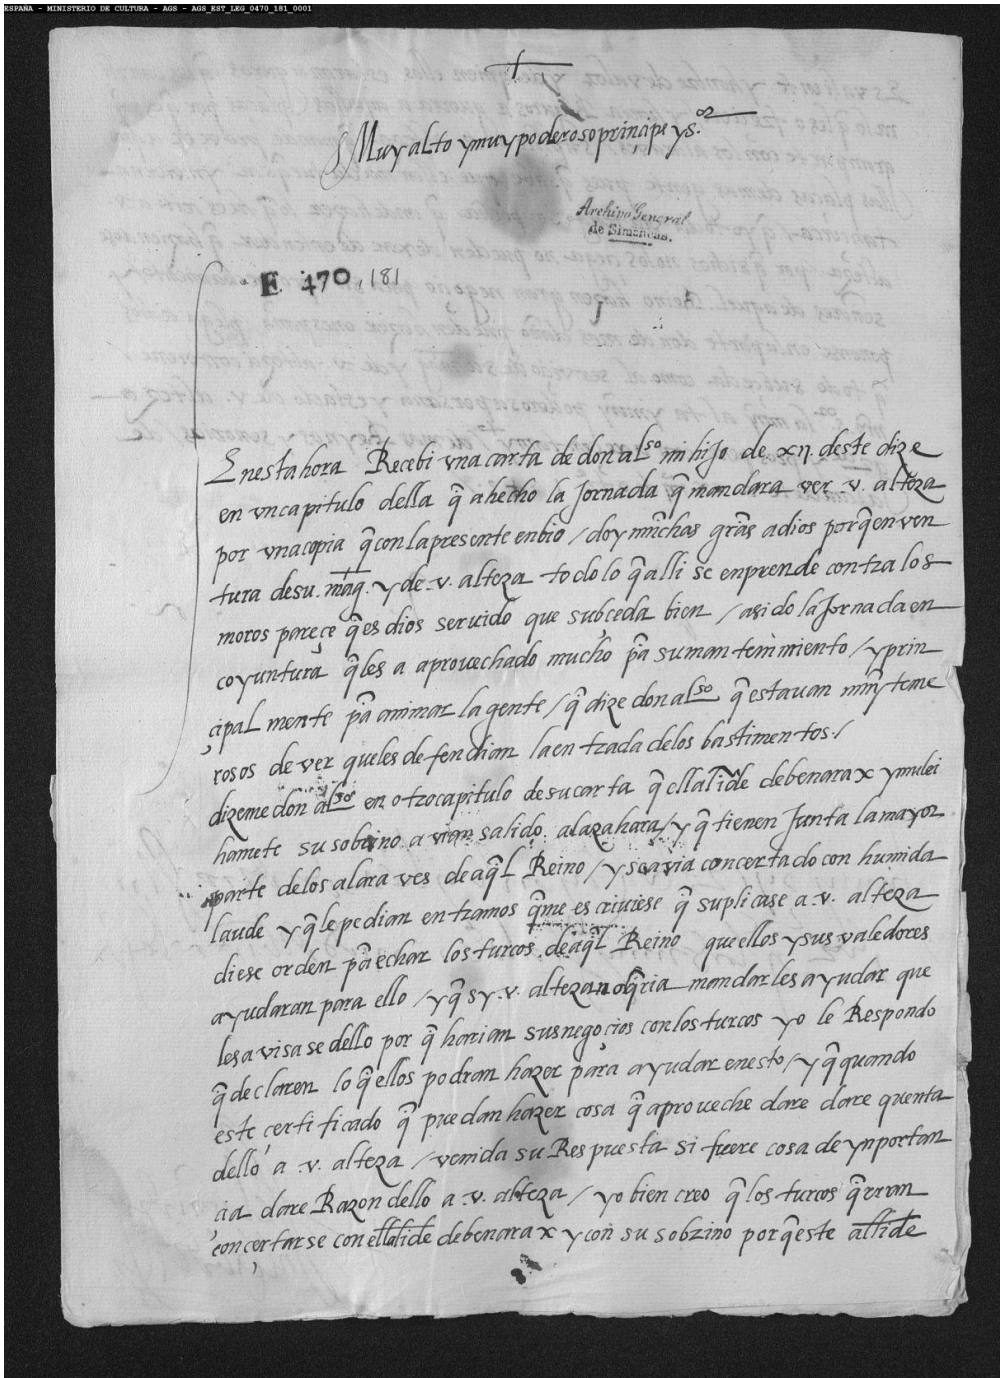 ESPAÑA - MINISTERIO DE CULTURA - AGS - AGS_EST_LEG_0470_181_0001
Muy alto y muy poderoso prinçipe y s.or
Archivo General
de Simancas.
E 470, 181
En esta hora Recebi vna carta de don al.so mi hijo de xij. deste dize
en vn capitulo della q̄ a hecho la Jornada q̄ mandara ver .v. alteza
por vna copia q̄ con la presente enbio / doy muchas grãs a dios porq̄ en ven
tura de su .mag. y de .v. alteza todo lo q̄ alli se enprende contra los
moros pareçe q̄ es dios seruido que subçeda bien / a sido la Jornada en
coyuntura q̄ les a aprouechado mucho pã su mantenimiento / y prin
çipal mente pã animar la gente / q̄ dize don al.so q̄ estauan muy teme
rosos de ver que les defendian la entrada de los bastimentos./
dizeme don al.so en otro capitulo de su carta q̄ ellalide de benarax y mulei
hamete su sobrino avian salido al azahara / y q̄ tienen Junta la mayor
parte de los alaraves de aq̄l Reino / y se avia concertado con humida
laude y q̄ le pedian entramos q̄ me escriuiese q̄ suplicase a .v. alteza
diese orden pã echar los turcos de aq̄l Reino que ellos y sus valedores
ayudaran para ello / y q̄ sy .v. alteza no q̄ria mandarles ayudar que
les avisase dello por q̄ harian sus negoçios con los turcos yo le Respondo
q̄ declaren lo q̄ ellos podran hazer para ayudar en esto / y q̄ quando
este çertificado q̄ puedan hazer cosa q̄ aproueche dare dare quenta
dello a .v. alteza / venida su Respuesta si fuere cosa de ynportan
çia dare Razon dello a .v. alteza / yo bien creo q̄ los turcos q̄rran
conçertarse con ellalide de benarax y con su sobrino porq̄ este allide